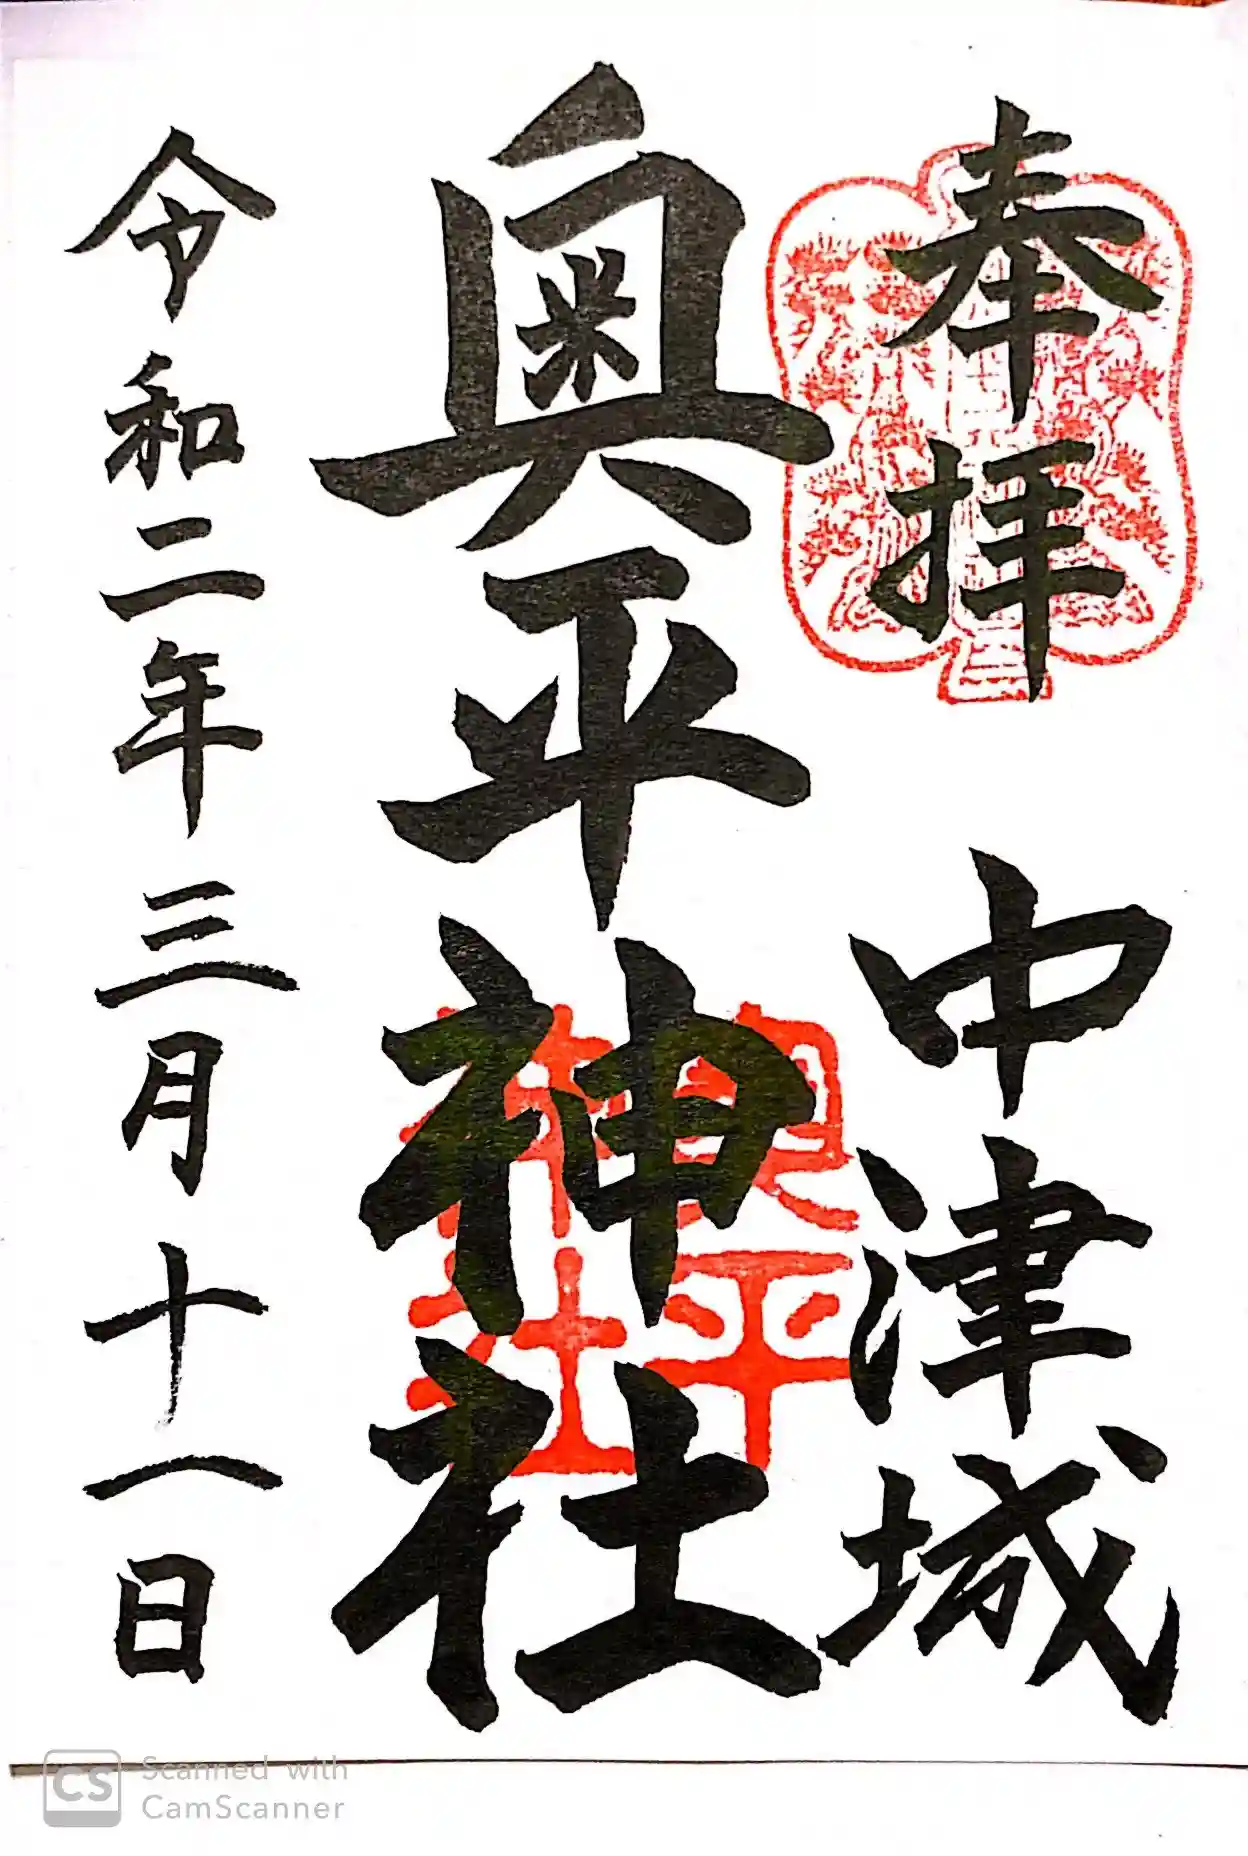 奉拝
中津城
奥平神社
奥平
神社
令和二年三月十一日
CS
Scanned with
CamScanner